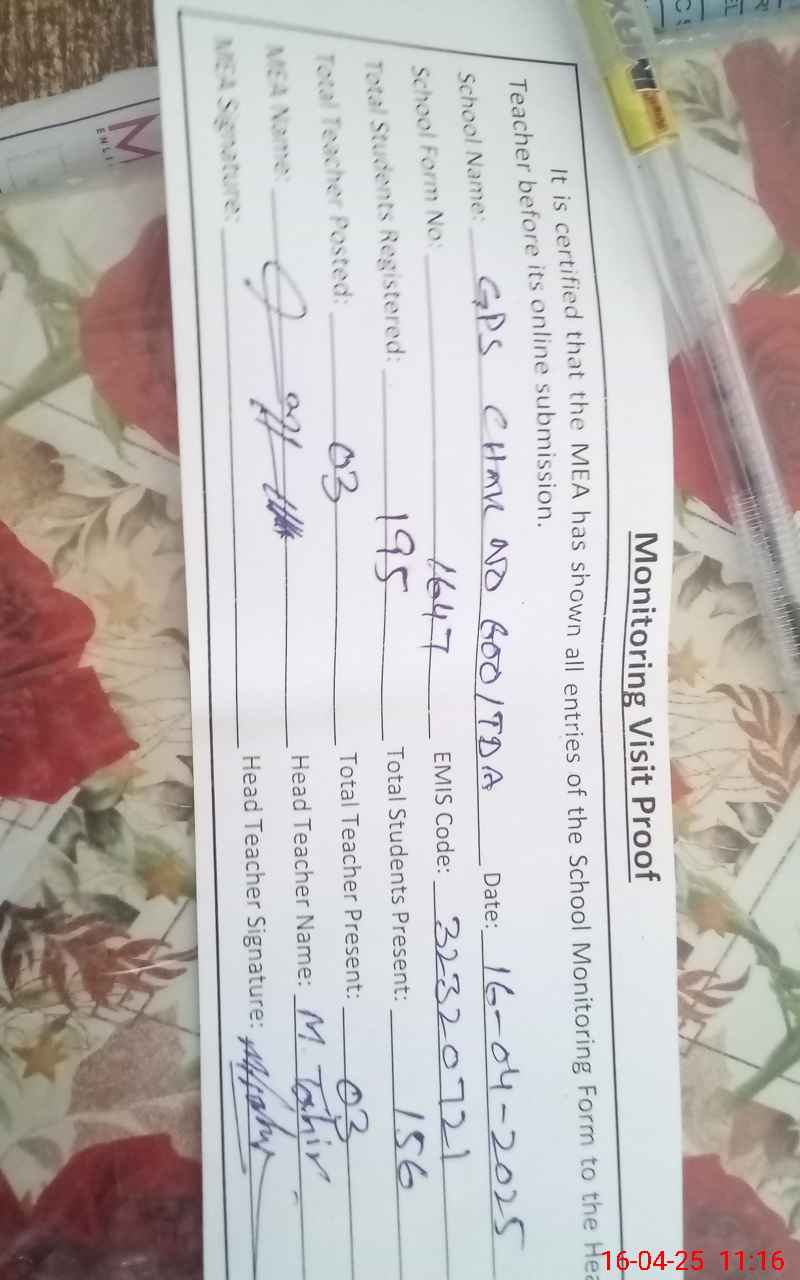 Monitoring Visit Proof
It is certified that the MEA has shown all entries of the School Monitoring Form to the Hea
Teacher before its online submission.
School Name: GPS CHAK NO 600/TDA Date: 16-04-2025
School Form No: 1647 EMIS Code: 32320721
Total Students Registered: 195 Total Students Present: 156
Total Teacher Posted: 03 Total Teacher Present: 03
MEA Name: Head Teacher Name: M. Tahir
MEA Signature: Head Teacher Signature:
M
ENLI
16-04-25 11:16